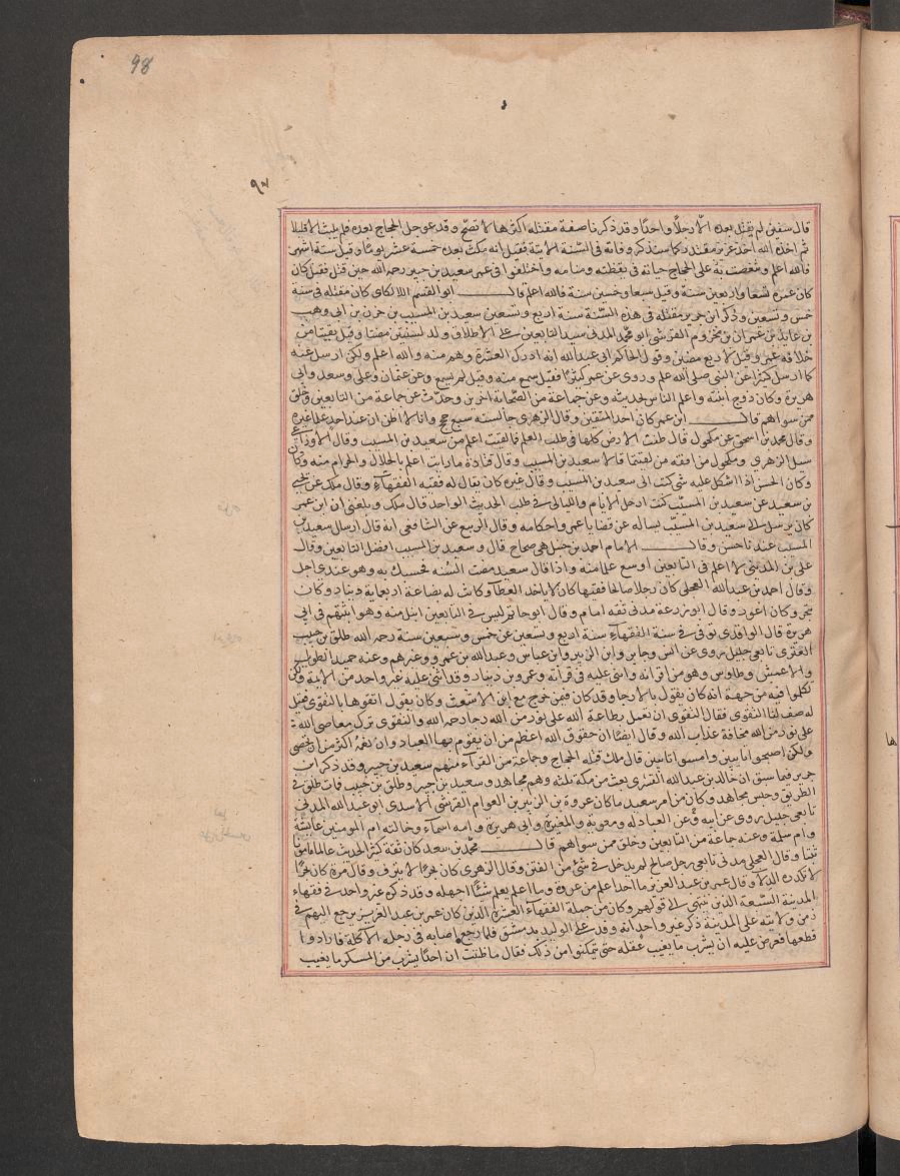 98
٩٧
قال سفين لم يقتل بعده الا رجلا واحدا وقد ذكرنا صفة مقتله اكثرها لا تصح وقد عوجل الحجاج بعده فلم يلبث الا قليلا
ثم اخذه الله اخذ عزيز مقتدر كما سنذكر وفاته في السنة الاتية فقيل انه مكث بعده خمسة عشر يوما وقيل ستة اشهر
فالله اعلم ونغصت على الحجاج حياته في يقظته ومنامه واختلفوا في عمر سعيد بن جبير رحمه الله حين قتل فقيل كان
كان عمره تسعا واربعين سنة وقيل سبعا وخمسين سنة فالله اعلم قال ابو القسم اللالكاي كان مقتله في سنة
خمس وتسعين وذكر ابن جرير مقتله في هذه السنة سنة اربع وتسعين سعيد بن المسيب بن حزن بن ابي وهب
بن عايذ بن عمران بن مخزوم القرشي ابو محمد المدني سيد التابعين على الاطلاق ولد لسنتين مضتا وقيل بقيتا من
خلافة عمر وقيل لاربع مضين وقول الحاكم ابي عبد الله انه ادرك العشرة وهم منه والله اعلم ولكن ارسل عنه
كما ارسل كثيرا عن النبي صلى الله عليه وروى عن عمر كثيرا فقيل سمع منه وقيل لم يسمع وعن عثمان وعلي وسعد وابي
هريرة وكان زوج ابنته واعلم الناس لحديثه وعن جماعة من الصحابة اخرين وحدث عن جماعة من التابعين وخلق
ممن سواهم قال ابن عمر كان احد المتقين وقال الزهري جالسته سبع حجج وانا لا اظن ان عند احد علما غيره
وقال محمد بن اسحق عن مكحول قال طفت الارض كلها في طلب العلم فما لقيت اعلم من سعيد بن المسيب وقال الاوزاعي
سيل الزهري ومكحول من افقه من لقيتما قالا سعيد بن المسيب وقال قتادة ما رايت اعلم بالحلال والحرام منه وكان
وكان الحسن اذا اشكل عليه شي كتب الى سعيد بن المسيب وقال غيره كان يقال له فقيه الفقهاء وقال ملك عن يحيى
بن سعيد عن سعيد بن المسيب كنت ارحل الايام والليالي في طلب الحديث الواحد قال ملك وبلغني ان ابن عمر
كان يرسل الى سعيد بن المسيب يساله عن قضايا عمر واحكامه وقال الربيع عن الشافعي انه قال ارسال سعيد بن
المسيب عندنا حسن وقال الامام احمد بن حنبل هي صحاح قال وسعيد بن المسيب افضل التابعين وقال
علي بن المديني لا اعلم في التابعين اوسع علما منه واذا قال سعيد مضت السنه فحسبك به وهو عندي اجل
وقال احمد بن عبد الله العجلي كان رجلا صالحا فقيها كان لا ياخذ العطا وكانت له بضاعة اربعماية دينار وكان
يتجر وكان اعور وقال ابو زرعة مدني ثقه امام وقال ابو حاتم ليس في التابعين انبل منه وهو اثبتهم في ابي
هريرة قال الواقدي توفي في سنة الفقهاء سنة اربع وتسعين عن خمس وسبعين سنة رحمه الله طلق بن حبيب
العنزي تابعي جليل روى عن انس وجابر وابن الزبير وابن عباس وعبد الله بن عمرو وغيرهم وعنه حميد الطويل
والاعمش وطاوس وهو من اقرانه واثنى عليه في قرانه وعمرو بن دينار وقد اثنى عليه غير واحد من الايمة ولكن
تكلموا فيه من جهة انه كان يقول بالارجا وقد كان فيمن خرج مع ابن الاشعث وكان يقول اتقوها بالتقوى فقيل
له صف لنا التقوى فقال التقوى ان تعمل بطاعة الله على نور من الله رجا رحمه الله والتقوى ترك معاصي الله
على نور من الله مخافة عذاب الله وقال ايضا ان حقوق الله اعظم من ان يقوم بها العباد وان نعمه اكثر من ان تحصى
ولكن اصبحوا تايبين وامسوا تايبين قال ملك قتله الحجاج وجماعة من القراء منهم سعيد بن جبير وقد ذكر ابن
جرير فيما سبق ان خالد بن عبد الله القسري بعث من مكة بثلثه وهم مجاهد وسعيد بن جبير وطلق بن حبيب فمات طلق في
الطريق وحبس مجاهد وكان من امر سعيد ما كان عروة بن الزبير بن العوام القرشي الاسدي ابو عبد الله المدني
تابعي جليل روى عن ابيه وعن العبادله ومعوية والمغيرة وابي هريرة وامه اسماء وخالته ام المومنين عايشة
وام سلمة وعنه جماعة من التابعين وخلق ممن سواهم قال محمد بن سعد كان ثقة كثير الحديث عالما مامونا
ثبتا وقال العجلي مدني تابعي رجل صالح لم يدخل في شي من الفتن وقال الزهري كان بحرا لا ينزف وقال مرة كان بحرا
لا تكدره الدلاء وقال عمر بن عبد العزيز ما احد اعلم من عروة وما اعلم يعلم شيئا اجهله وقد ذكره غير واحد في فقهاء
المدينة السبعة الذين ينتهي الى قولهم وكان من جملة الفقهاء العشرة الذين كان عمر بن عبد العزيز يرجع اليهم في
زمن ولايته على المدينة ذكر غير واحد انه وفد على الوليد بدمشق فلما رجع اصابه في رجله الاكلة فارادوا
قطعها فعرض عليه ان يشرب ما يغيب عقله حتى يتمكنوا من ذلك فقال ما ظننت ان احدا يشرب من المسكر ما يغيب